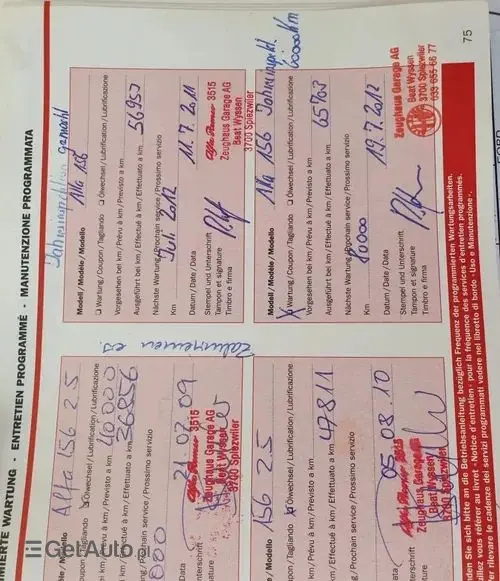 MANUTENZIONE PROGRAMMATA
ENTRETIEN PROGRAMMÉ
WARTUNG
Alfa 156 2.5
Ölwechsel / Lubrification / Lubrificazione
km / Prévu à km / Previsto a km 40000
km / Effectué à km / Effettuato a km 36856
Prochain service / Prossimo servizio
21 07 09
Alfa Romeo 3515
Zeughaus Garage AG
Beat Wyssen
3700 Spiezwiler
156 2.5
Coupon / Tagliando
Ölwechsel / Lubrification / Lubrificazione
km / Prévu à km / Previsto a km
km / Effectué à km / Effettuato a km 47811
Prochain service / Prossimo servizio
Date / Data 05 08 10
Alfa Romeo 3515
Zeughaus Garage AG
Beat Wyssen
3700 Spiezwiler
Zahnriemen
Jahresinspektion gemacht
Modell / Modèle / Modello Alfa 156
Wartung / Coupon / Tagliando Ölwechsel / Lubrification / Lubrificazione
Vorgesehen bei km / Prévu à km / Previsto a km
Ausgeführt bei km / Effectué à km / Effettuato a km 56953
Nächste Wartung / Prochain service / Prossimo servizio
Km Juli 2012
Datum / Date / Data 11.7.2011
Stempel und Unterschrift
Tampon et signature
Timbro e firma
Alfa Romeo 3515
Zeughaus Garage AG
Beat Wyssen
3700 Spiezwiler
Modell / Modèle / Modello Alfa 156
Wartung / Coupon / Tagliando Ölwechsel / Lubrification / Lubrificazione
Vorgesehen bei km / Prévu à km / Previsto a km
Ausgeführt bei km / Effectué à km / Effettuato a km 65763
Nächste Wartung / Prochain service / Prossimo servizio
Km
Datum / Date / Data 19.7.2012
Stempel und Unterschrift
Tampon et signature
Timbro e firma
Zeughaus Garage AG
Beat Wyssen
3700 Spiezwiler
033 655 66 77
Sie sich bitte an die Betriebsanleitung bezüglich Frequenz der programmierten Wartungsarbeiten.
vous référer au livret «Notice d'entretien» pour la fréquence des services d'entretien programmés.
rilevare le cadenze dei servizi programmati vedere nel libretto di bordo «Uso e Manutenzione».
75
GetAuto.pl